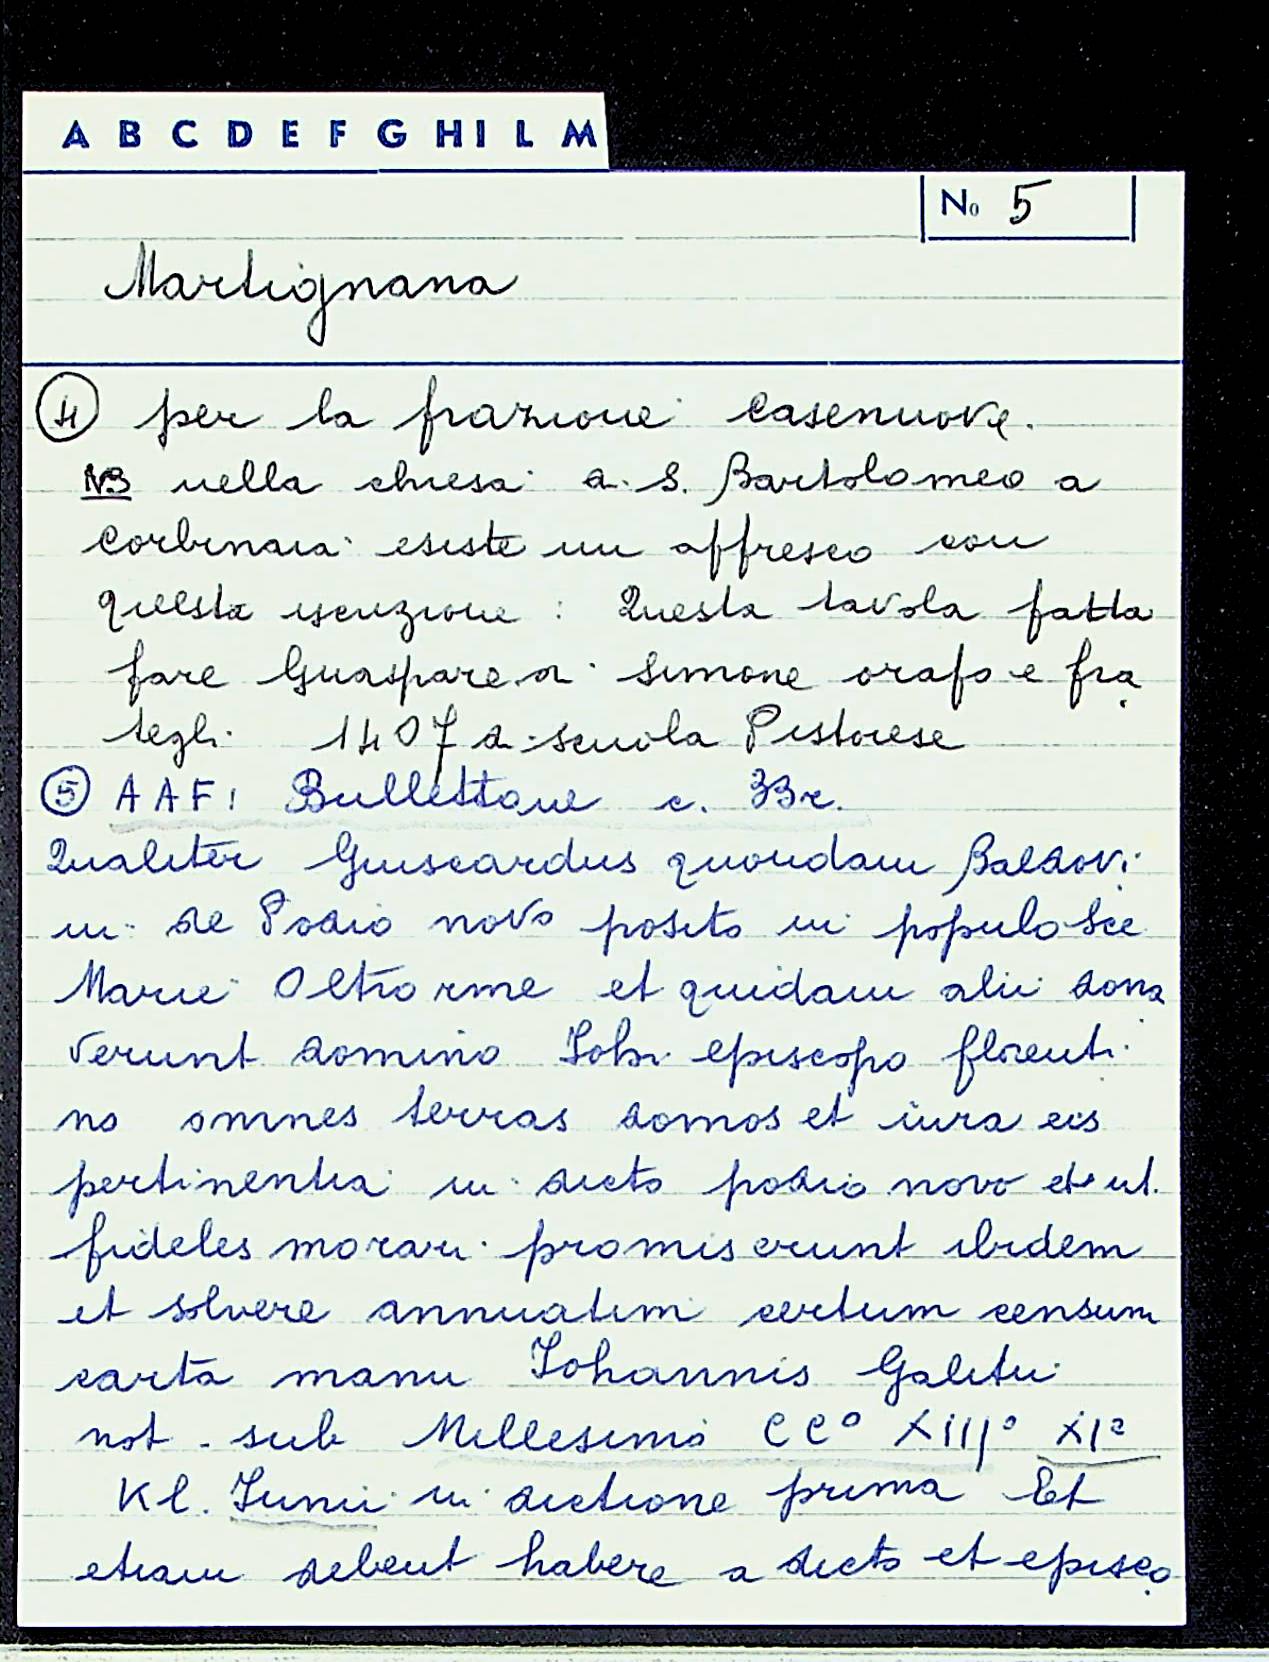 A B C D E F G H I L M
No 5
Martignana
④ per la frazione Casenuove.
NB nella chiesa di S. Bartolomeo a
Corbinaia esiste un affresco con
questa iscrizione: Questa tavola fatta
fare Guaspare di Simone orafo e fra
tegli 1407 di scuola Pistoiese
⑤ AAFI Bullettone c. 33r.
Qualiter Guiscardus quondam Baldovi
ni de Podio novo posito in populo Sce
Marie Oltrorme et quidam alii dona
verunt domino Iohi episcopo florenti
no omnes terras domos et iura eis
pertinentia in dicto podio novo et ut
fideles morari promiserunt ibidem
et solvere annuatim certum censum
carta manu Iohannis Galitii
not. sub Millesimo CC° XIII° XI°
Kl. Iunii indictione prima Et
etiam debent habere a dicto et episco